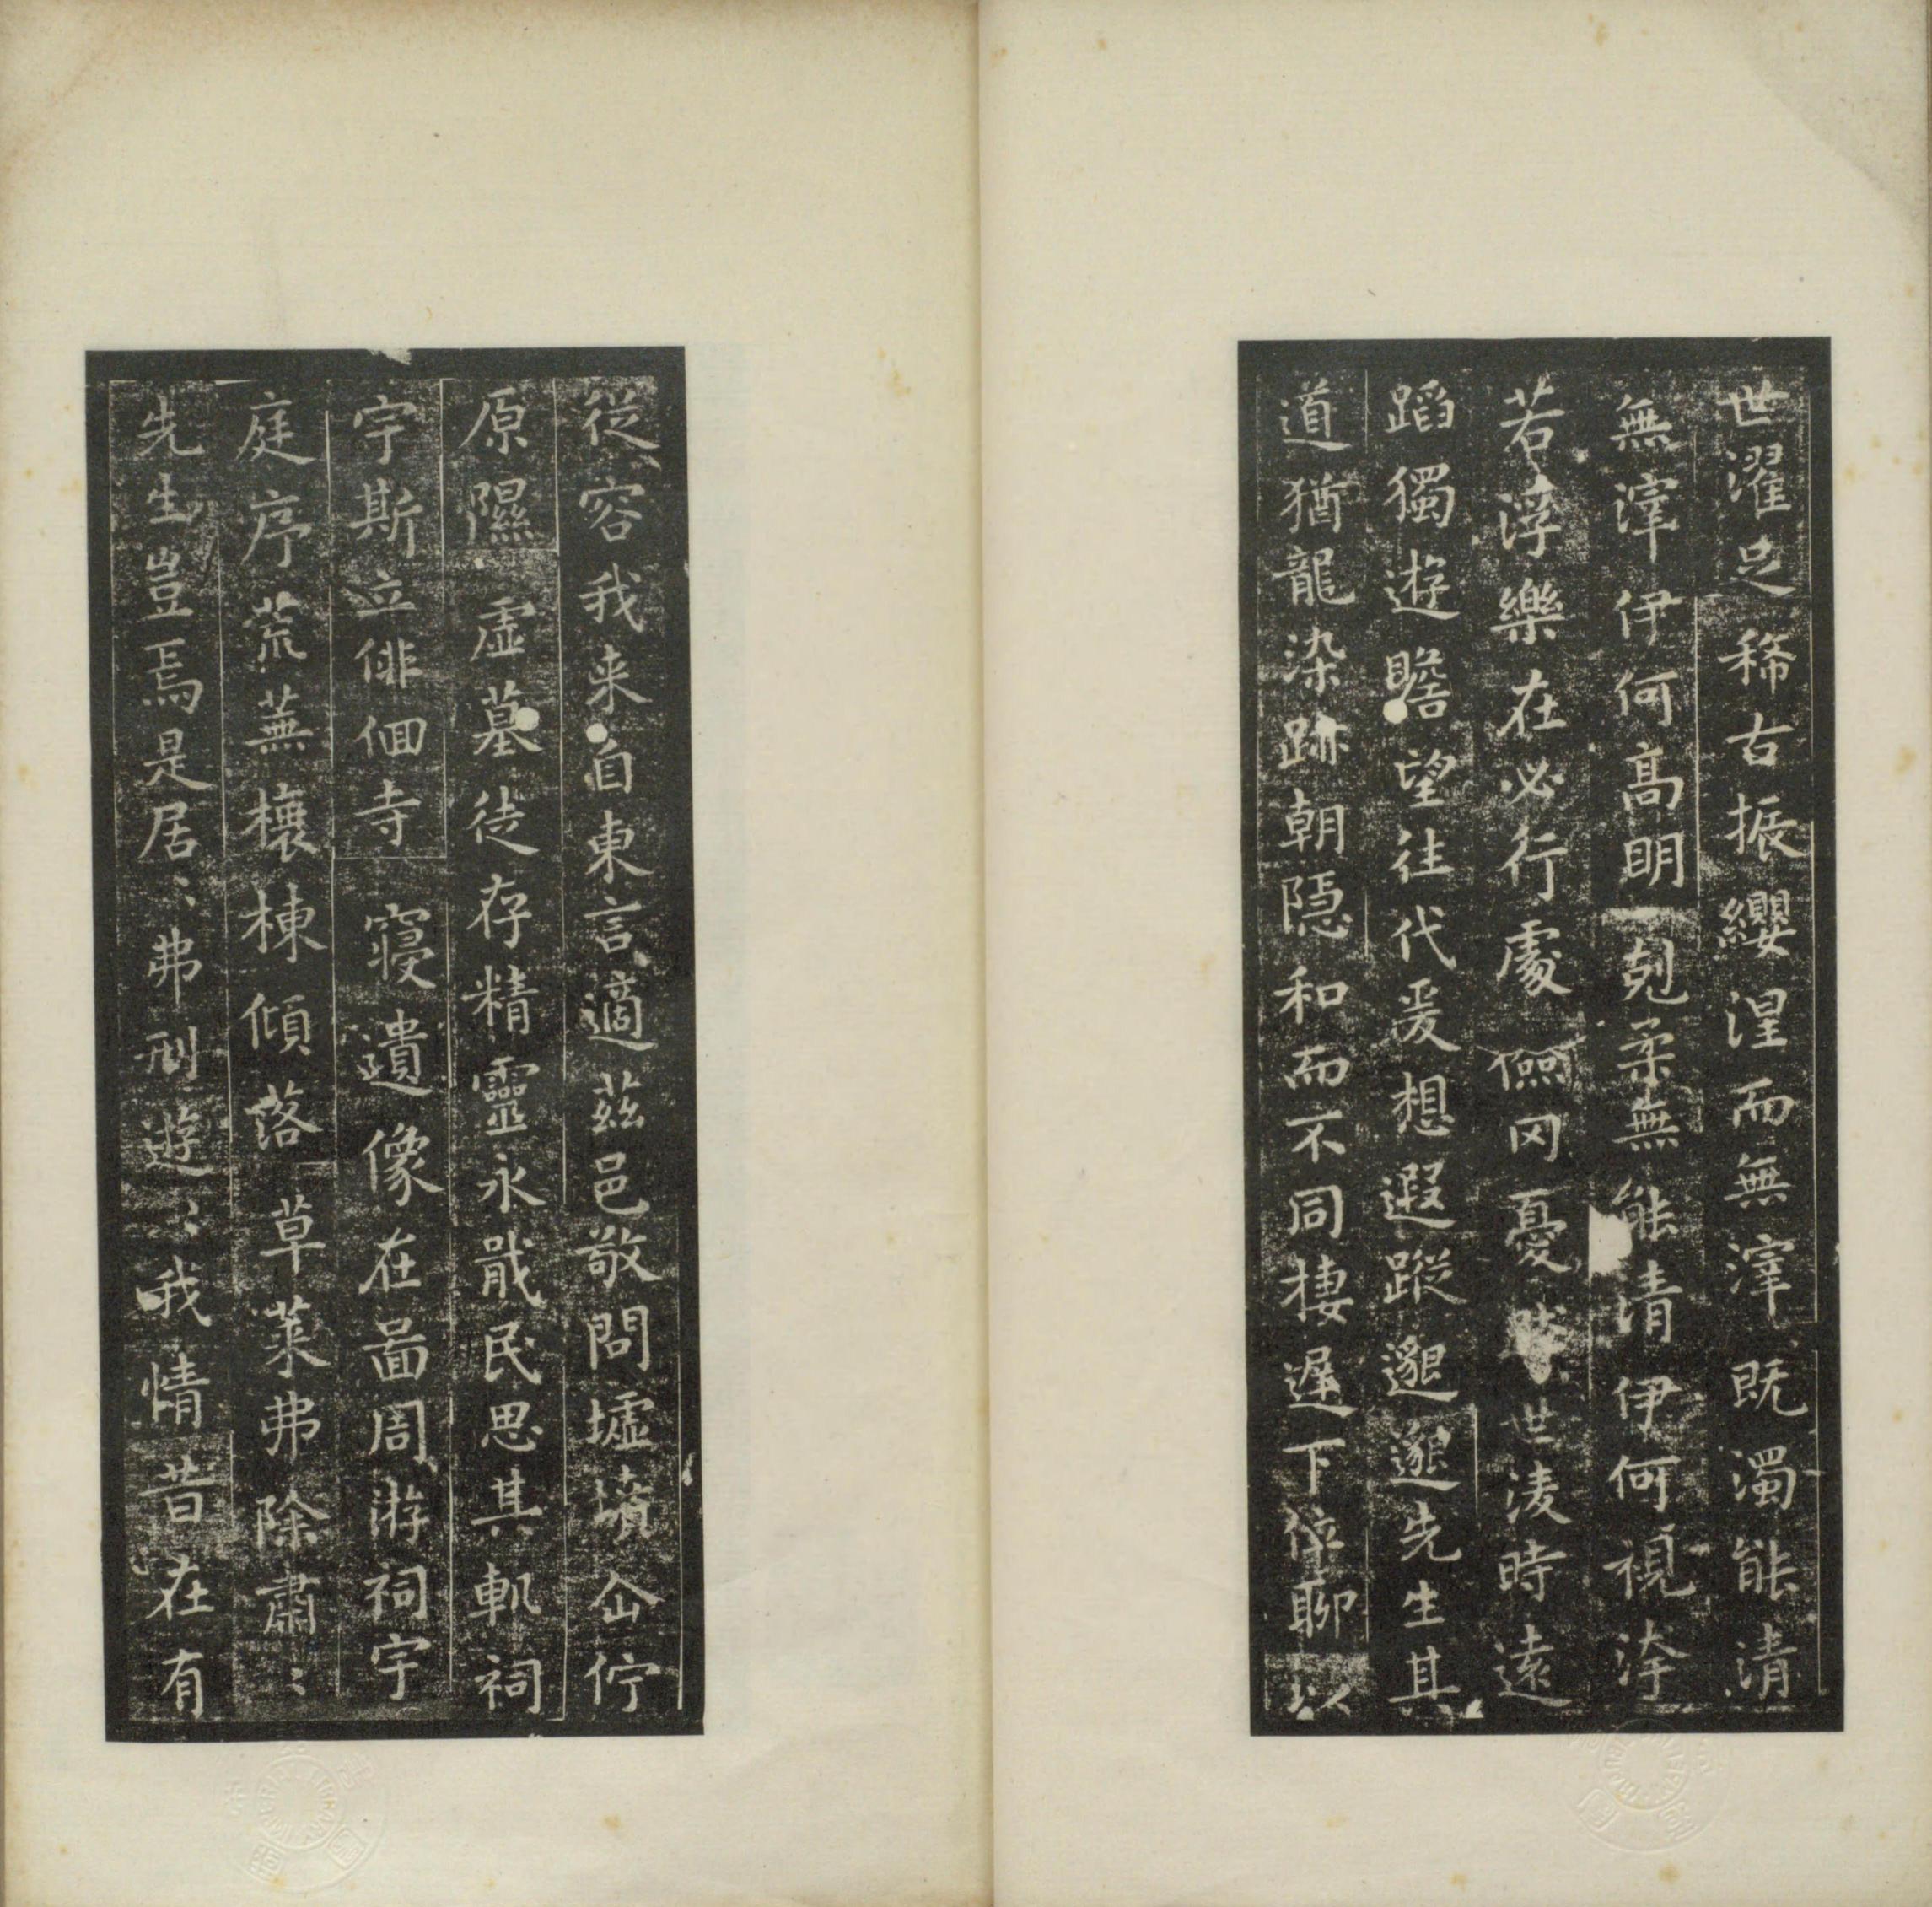 世濯足稀古振纓涅而無滓既濁能清
無滓伊何高明剋柔無能清伊何視洿
若浮樂在必行處儉罔憂世淩時遠
蹈獨遊瞻望往代爰想遐蹤邈邈先生其
道猶龍染跡朝隱和而不同棲遲下位聊以
從容我来自東言適茲邑敬問墟墳企佇
原隰虛墓徒存精靈永戢民思其軌祠
宇斯立俳佪寺寢遺像在啚周游祠宇
庭序荒蕪榱棟傾落草萊弗除肅〻
先生豈焉是居〻弗刑遊〻我情昔在有